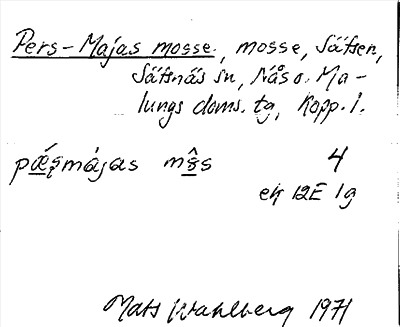 Pers-Majas mosse, mosse, Säfsen,
Säfsnäs sn, Nås o. Ma-
lungs doms. tg, Kopp. l.
pǽṣmájas mô̭s 4
ek 12E 1g
Mats Wahlberg 1971